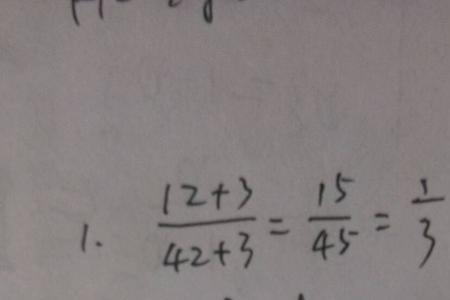 1. (12+3)/(42+3) = 15/45 = 1/3